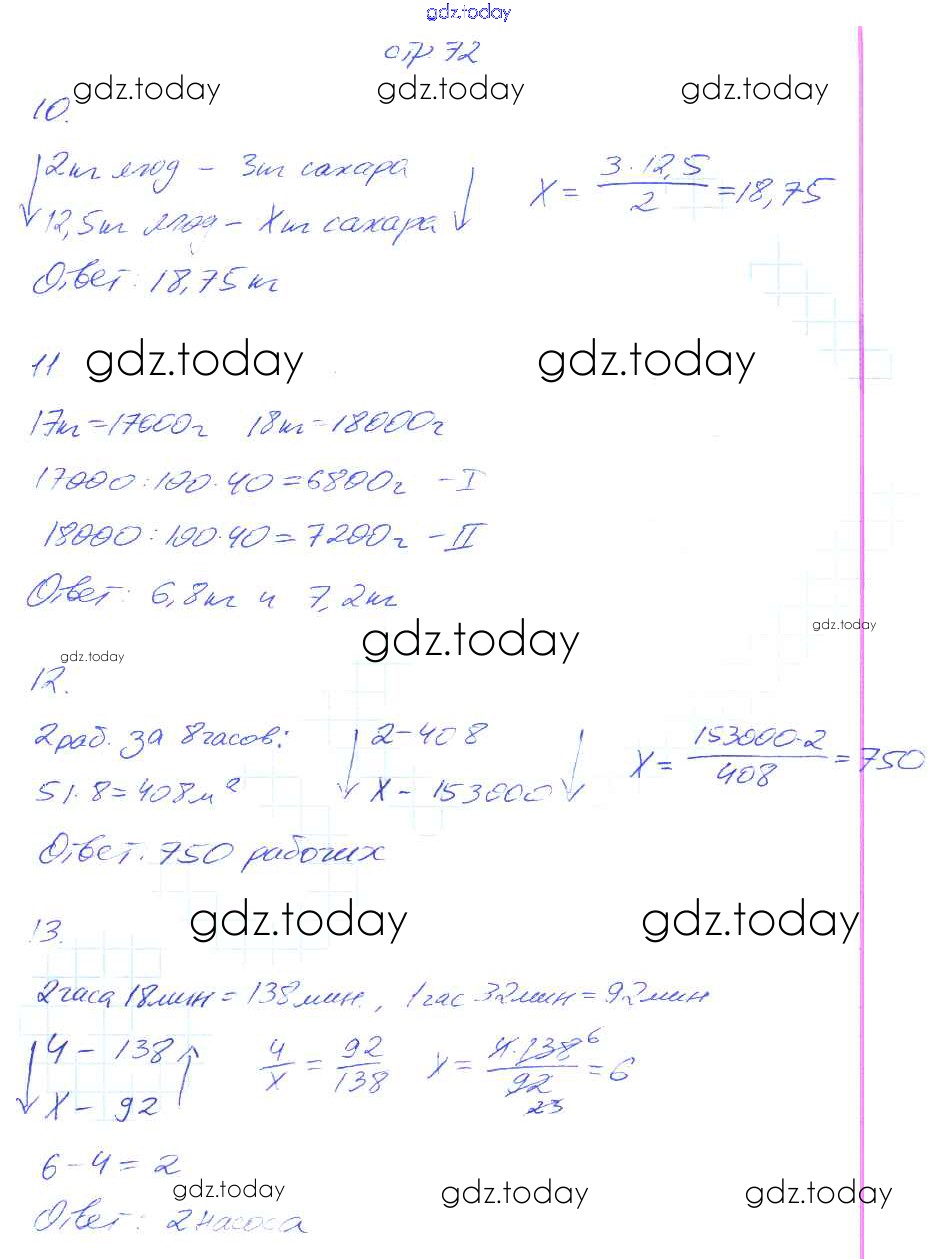 gdz.today
стр. 72
gdz.today gdz.today gdz.today
10.
2кг ягод – 3кг сахара X = 3·12,5/2 = 18,75
12,5кг ягод – Xкг сахара
Ответ: 18,75кг
11 gdz.today gdz.today
17кг = 17000г 18кг = 18000г
17000:100·40 = 6800г – I
18000:100·40 = 7200г – II
Ответ: 6,8кг и 7,2кг
gdz.today
gdz.today gdz.today
12.
2раб. за 8часов: 2 – 408 X = 153000·2/408 = 750
51·8 = 408м² X – 153000
Ответ. 750 рабочих
gdz.today gdz.today
13.
2часа 18мин = 138мин., 1час 32мин = 92мин
4 – 138 4/X = 92/138 X = 4·138 6/92 23 = 6
X – 92
6 – 4 = 2
gdz.today gdz.today gdz.today
Ответ: 2 насоса